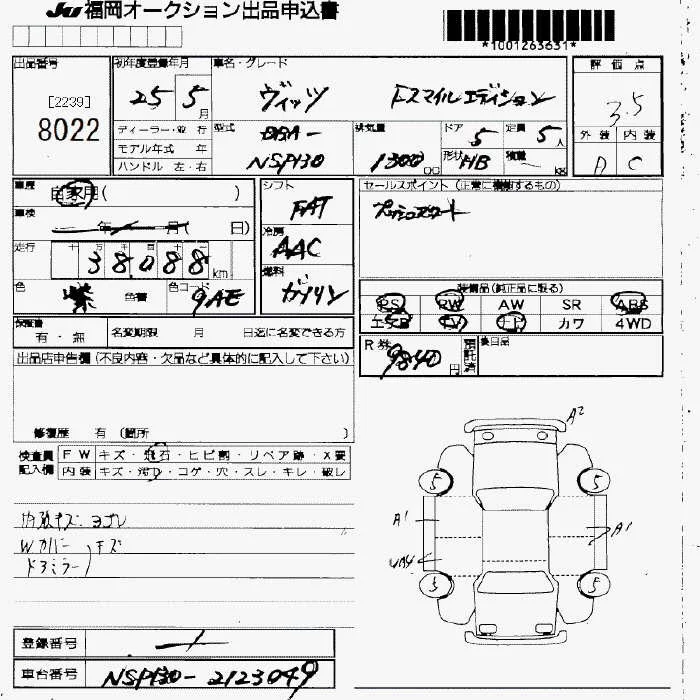 JU 福岡オークション出品申込書
*1001263631*
出品番号 初年度登録年月 車名・グレード 評価点
[2239]
8022
25 5月 ヴィッツ Fスマイルエディション 3.5
ディーラー・並行 型式 DBA- 排気量 ドア 5 定員 5人 外装 内装
モデル年式 年
ハンドル 左・右 NSP130 1300cc 形状 HB 積載 kg A C
車歴 自家用( ) シフト FAT セールスポイント (正常に機能するもの)
車検 年 月 日) プッシュスタート
冷房 AAC
走行 38,088km
燃料 ガソリン
色 紫 色替 色コード 9AE
装備品(純正品に限る)
PS RW AW SR ABS
エアB TV ナビ カワ 4WD
保証書 有・無 名変期限 月 日迄に名変できる方
R券 9840円 預託済 後日品
出品店申告欄(不良内容・欠品など具体的に記入して下さい)
修復歴 有 (箇所 )
検査員 FW キズ・飛石・ヒビ割・リペア跡・X要
記入欄 内装 キズ・汚れ・コゲ・穴・スレ・キレ・破レ
内装キズ ヨゴレ
Wカバー
ドアミラー )キズ
A2
5 5
A1 A1
5 5
登録番号
車台番号 NSP130-2123049